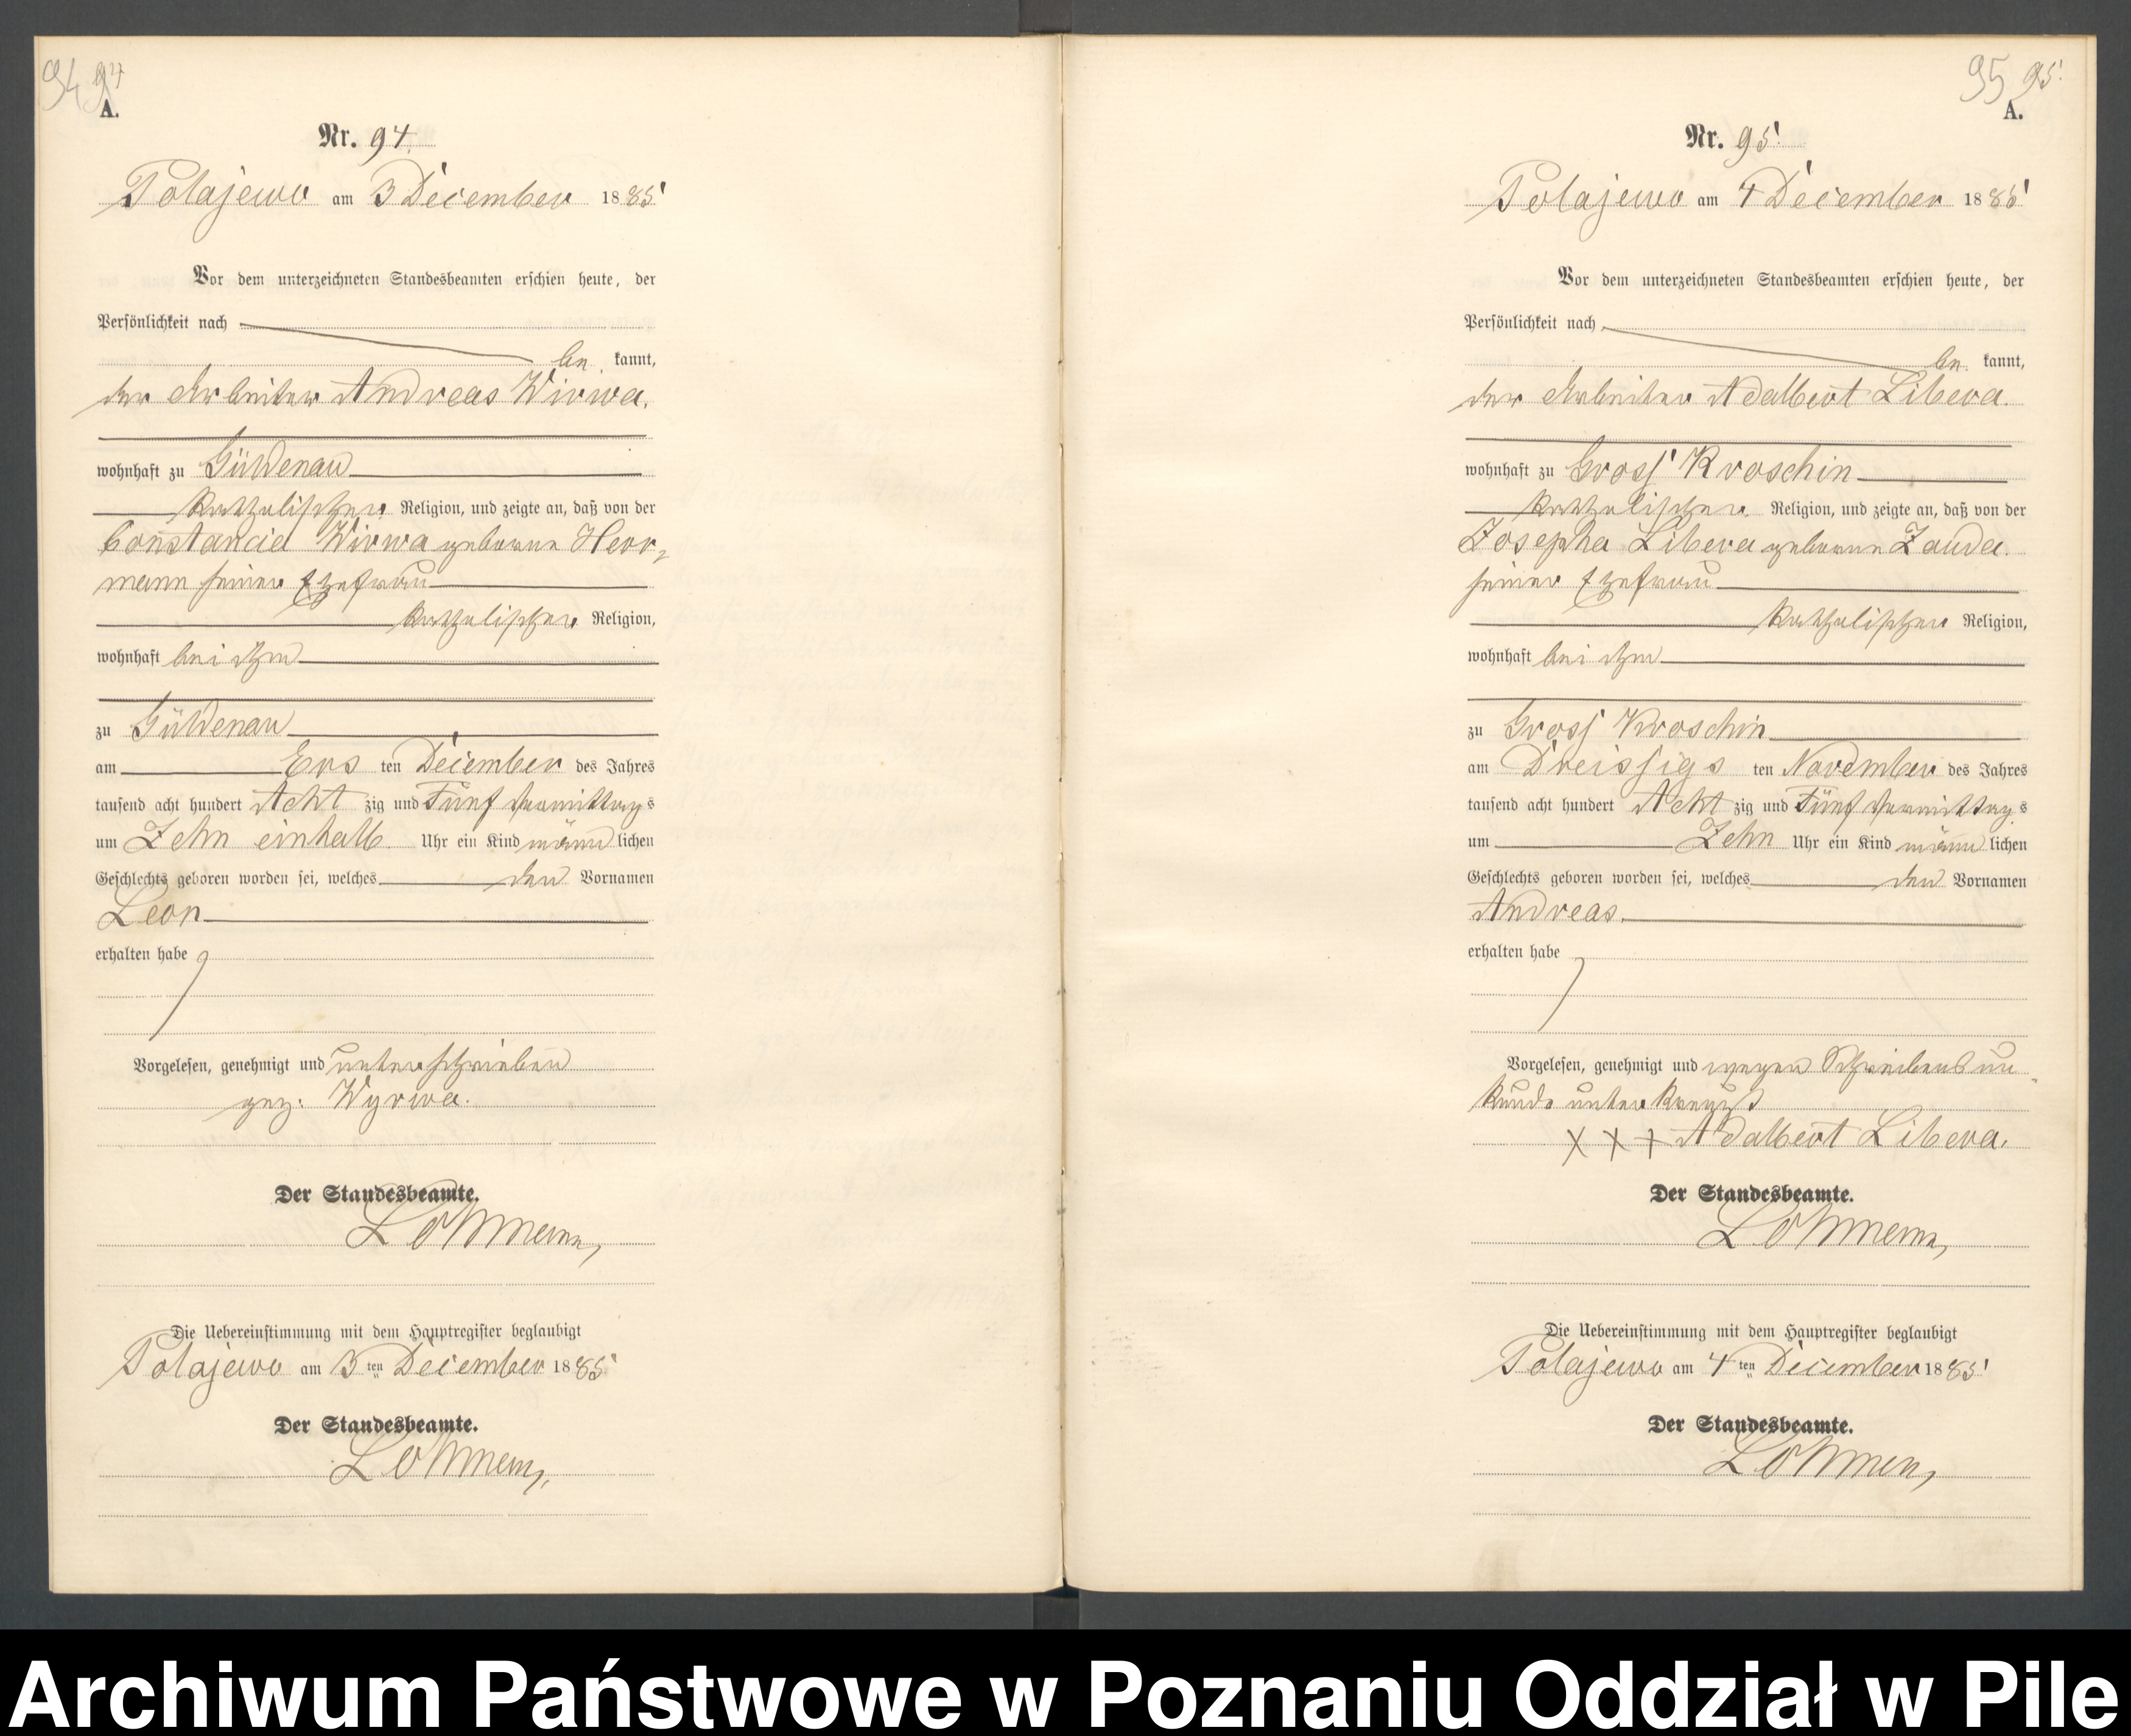 94 94
A.
Nr. 94.
Polajewo am 3 December 1885
Vor dem unterzeichneten Standesbeamten erschien heute, der
Persönlichkeit nach
be kannt,
der Arbeiter Andreas Wirwa.
wohnhaft zu Güldenau
katholischer Religion, und zeigte an, daß von der
Constancia Wirwa geborne Herr⸗
mann seiner Ehefrau
katholischer Religion,
wohnhaft bei ihm
zu Güldenau
am Ers ten December des Jahres
tausend acht hundert Acht zig und Fünf Vormittags
um Zehn einhalb Uhr ein Kind männ lichen
Geschlechts geboren worden sei, welches den Vornamen
Leon
erhalten habe
Vorgelesen, genehmigt und unterschrieben
gez: Wyrwa.
Der Standesbeamte.
Lohmann,
Die Uebereinstimmung mit dem Hauptregister beglaubigt
Polajewo am 3ten December 1885
Der Standesbeamte.
Lohmann,
95 95
A.
Nr. 95
Polajewo am 4 December 1885
Vor dem unterzeichneten Standesbeamten erschien heute, der
Persönlichkeit nach
be kannt,
der Arbeiter Adalbert Libera.
wohnhaft zu Gross Kroschin
katholischer Religion, und zeigte an, daß von der
Josepha Libera geborne Zauda.
seiner Ehefrau
katholischer Religion,
wohnhaft bei ihm
zu Gross Kroschin
am Dreissigs ten November des Jahres
tausend acht hundert Acht zig und Fünf Vormittags
um Zehn Uhr ein Kind männ lichen
Geschlechts geboren worden sei, welches den Vornamen
Andreas.
erhalten habe
Vorgelesen, genehmigt und wegen Schreibensun⸗
kunde unterkreuzt
XXX Adalbert Libera.
Der Standesbeamte.
Lohmann,
Die Uebereinstimmung mit dem Hauptregister beglaubigt
Polajewo am 4ten December 1885
Der Standesbeamte.
Lohmann,
Archiwum Państwowe w Poznaniu Oddział w Pile